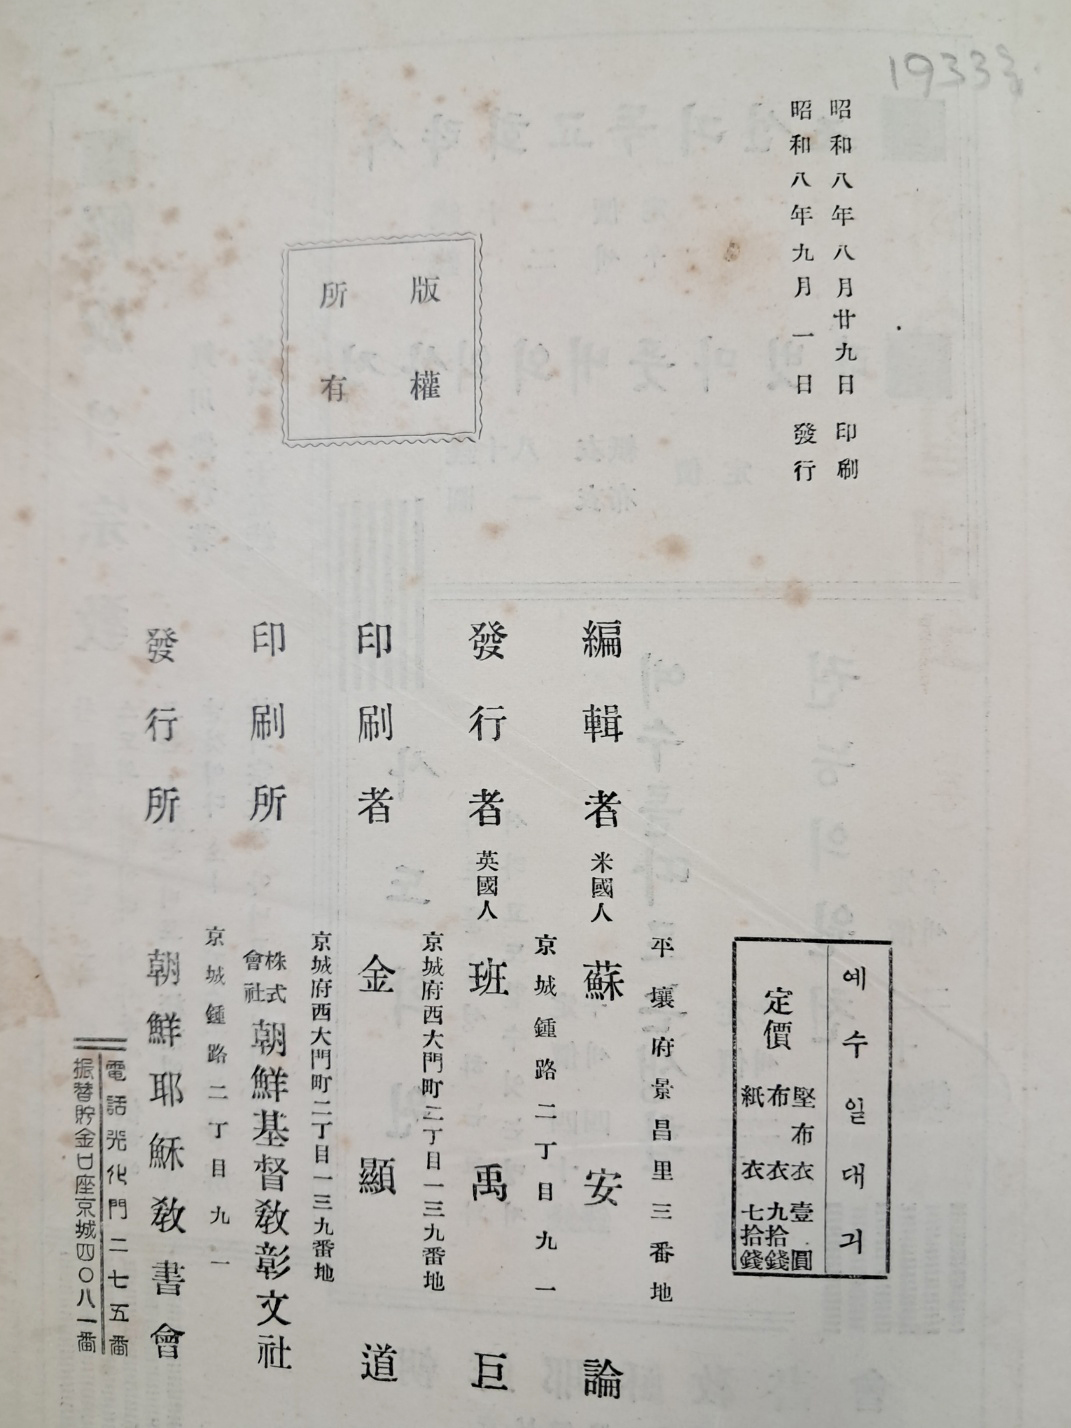 1933
昭和八年八月廿九日 印刷
昭和八年九月一日 發行
版權
所有
예수일대긔
定價
堅布衣 壹圓
布衣 九拾錢
紙衣 七拾錢
平壤府景昌里三番地
編輯者 米國人 蘇安論
京城鍾路二丁目九一
發行者 英國人 班禹巨
京城府西大門町二丁目一三九番地
印刷者 金顯道
京城府西大門町二丁目一三九番地
印刷所 株式會社 朝鮮基督敎彰文社
京城鍾路二丁目九一
發行所 朝鮮耶穌敎書會
電話光化門二七五番
振替貯金口座京城四〇八一番